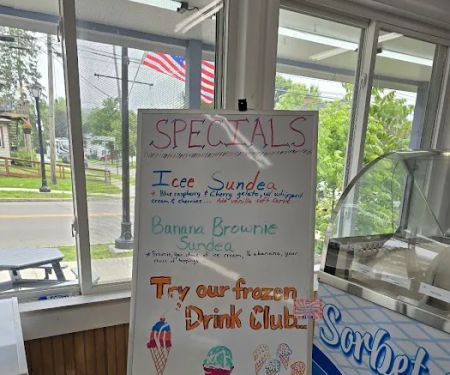 SPECIALS
Icee Sundea
* Blue raspberry & Cherry gelato, w/ whipped
cream & cherries... Add vanilla soft serve
Banana Brownie
Sundea
* Brownie, Your choice of ice cream, & banana, your
choice of toppings
Try our frozen
Drink Club...
Sorbet